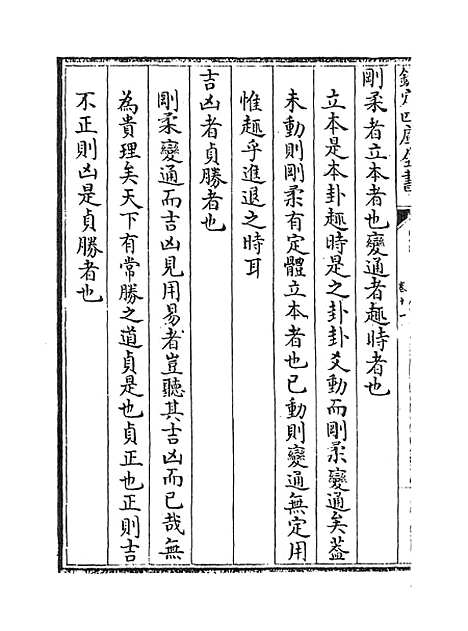 欽定四庫全書
卷十一
剛柔者立本者也變通者趣時者也
立本是本卦趣時是之卦卦爻動而剛柔變通矣蓋
未動則剛柔有定體立本者也已動則變通無定用
惟趣乎進退之時耳
吉凶者貞勝者也
剛柔變通而吉凶見用易者豈聽其吉凶而已哉無
為貴理矣天下有常勝之道貞是也貞正也正則吉
不正則凶是貞勝者也